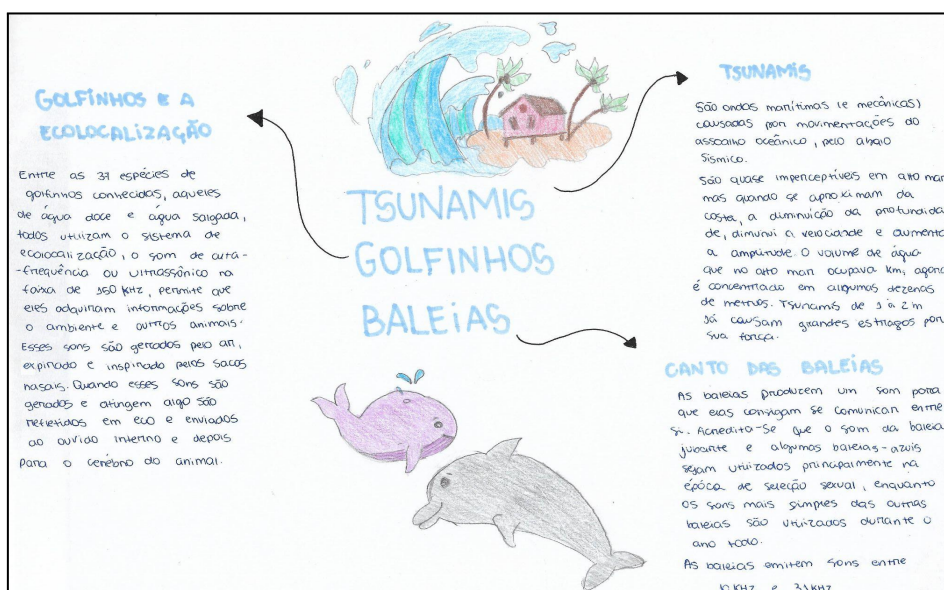 GOLFINHOS E A
ECOLOCALIZAÇÃO
Entre as 37 espécies de
golfinhos conhecidas, aqueles
de água doce e água salgada,
todos utilizam o sistema de
ecolocalização, o som de alta-
-frequência ou ultrassônico na
faixa de 150 KHz, permite que
eles adquiram informações sobre
o ambiente e outros animais.
Esses sons são gerados pelo ar,
expirado e inspirado pelos sacos
nasais. Quando esses sons são
gerados e atingem algo são
refletidos em eco e enviados
ao ouvido interno e depois
para o cérebro do animal.
TSUNAMIS
GOLFINHOS
BALEIAS
TSUNAMIS
São ondas marítimas (e mecânicas)
causadas por movimentações do
assoalho oceânico, pelo abalo
sísmico.
São quase imperceptíveis em alto mar
mas quando se aproximam da
costa, a diminuição da profundida
de, diminui a velocidade e aumenta
a amplitude. O volume de água
que no alto mar ocupava km, agora
é concentrado em algumas dezenas
de metros. Tsunamis de 1 a 2m
já causam grandes estragos por
sua força.
CANTO DAS BALEIAS
As baleias produzem um som para
que elas consigam se comunicar entre
si. Acredita-se que o som da baleia
jubarte e algumas baleias-azuis
sejam utilizados principalmente na
época de seleção sexual, enquanto
os sons mais simples das outras
baleias são utilizados durante o
ano todo.
As baleias emitem sons entre
KHz e 31KHz